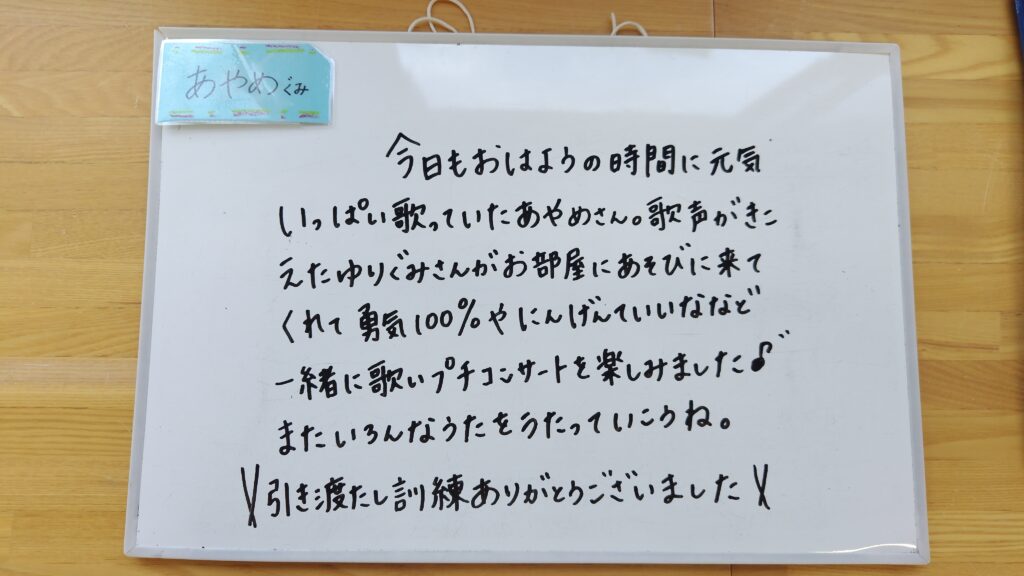 あやめぐみ
今日もおはようの時間に元気
いっぱい歌っていたあやめさん。歌声がきこ
えたゆりぐみさんがお部屋にあそびに来て
くれて勇気100%やにんげんていいななど
一緒に歌いプチコンサートを楽しみました♪
またいろんなうたをうたっていこうね。
\引き渡たし訓練ありがとうございました/